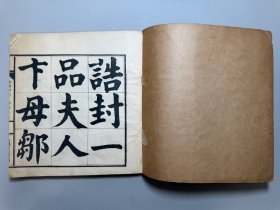 誥封一
品夫人
卞母鄒